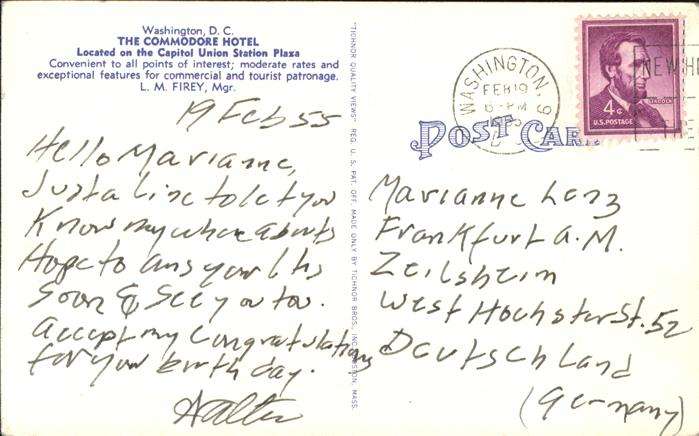 Washington, D. C.
THE COMMODORE HOTEL
Located on the Capitol Union Station Plaza
Convenient to all points of interest; moderate rates and
exceptional features for commercial and tourist patronage.
L. M. FIREY, Mgr.
19 Feb 55
Hello Marianne,
Just a line to let you
Know my whereabouts
Hope to ans your ltrs
Soon & See you too.
Accept my Congratulations
for your birthday.
Walter
"TICHNOR QUALITY VIEWS" REG. U. S. PAT. OFF. MADE ONLY BY TICHNOR BROS., INC., BOSTON, MASS.
POST CARD
WASHINGTON 9
FEB 19
6 - PM
NEW H
4¢
LINCOLN
U.S. POSTAGE
Marianne Lenz
Frankfurt a. M.
Zeilsheim
West Hochster St. 52
Deutschland
(Germany)